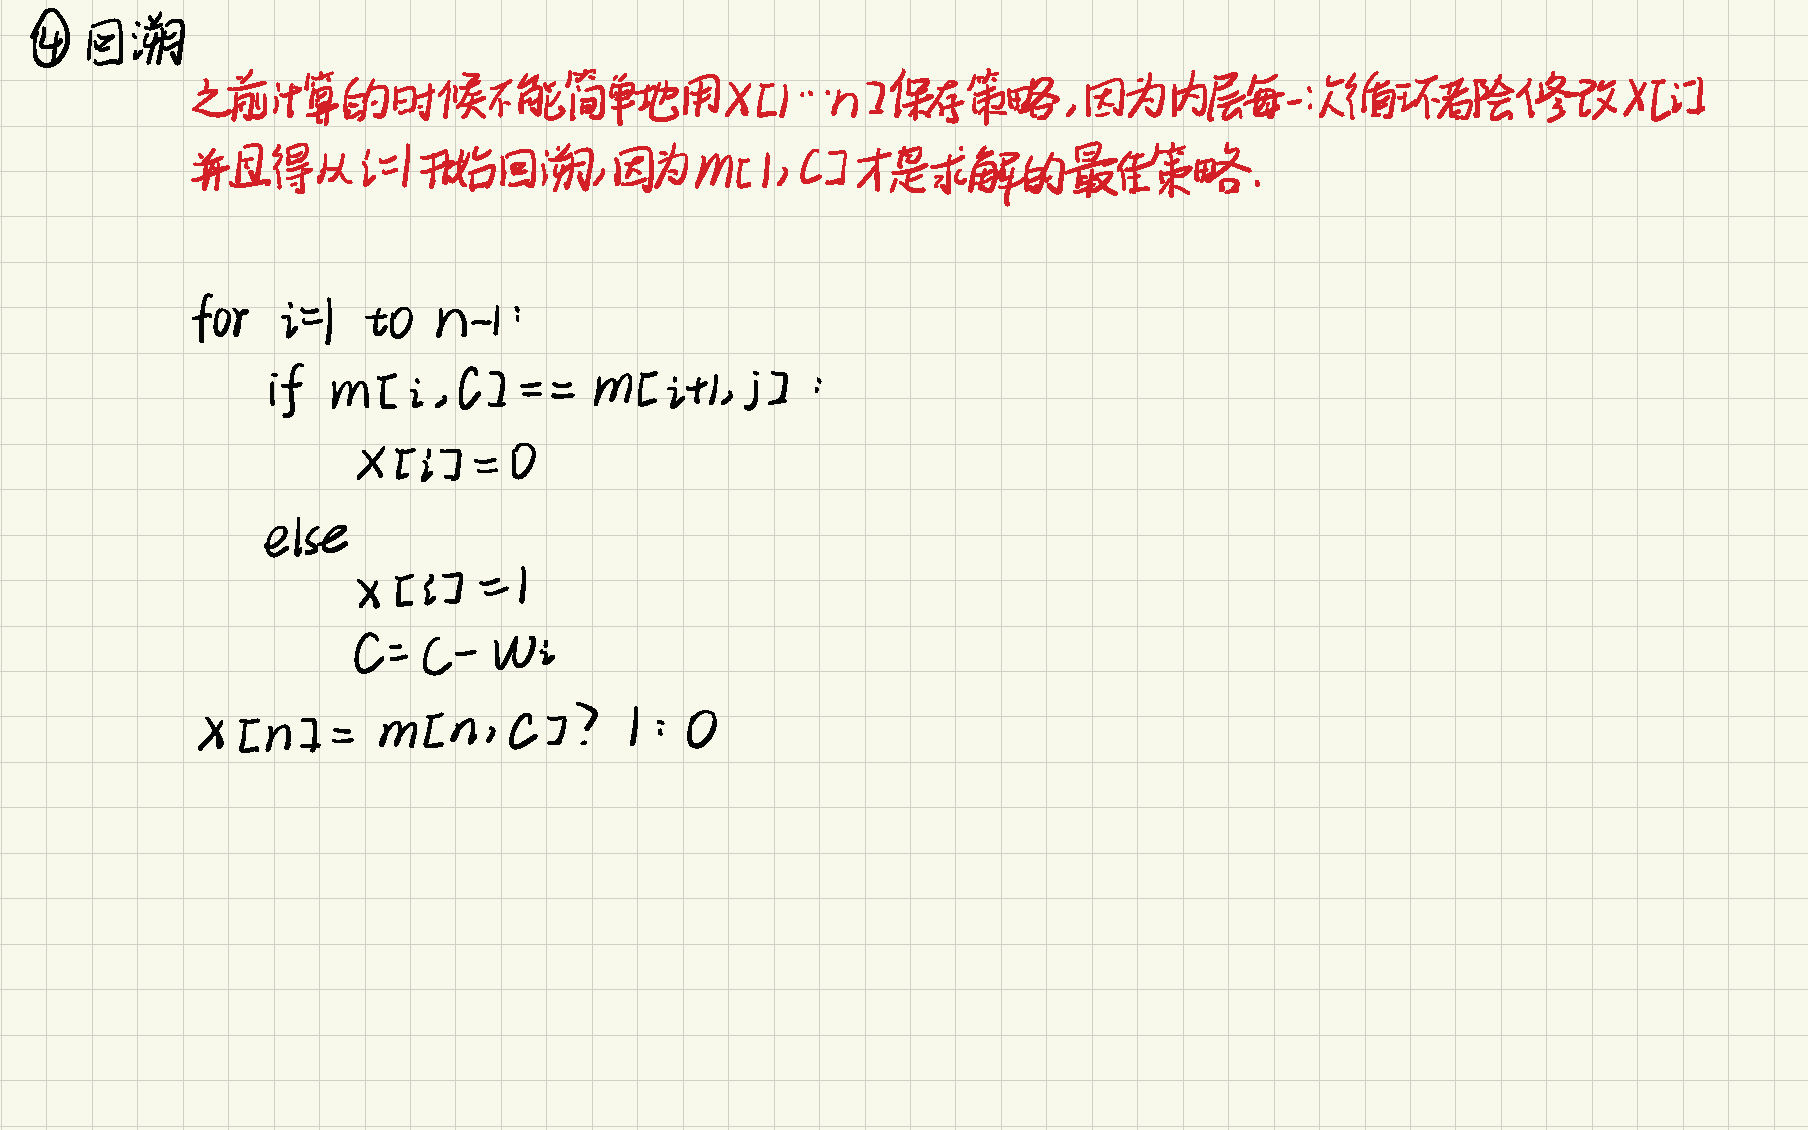 ④ 回溯
之前计算的时候不能简单地用X[1…n]保存策略,因为内层每一次循环都会修改X[i]
并且得从i=1开始回溯,因为m[1,C]才是求解的最佳策略.
for i=1 to n-1:
if m[i,C]==m[i+1,j]:
X[i]=0
else
x[i]=1
C=C-wi
X[n]=m[n,C]?1:0